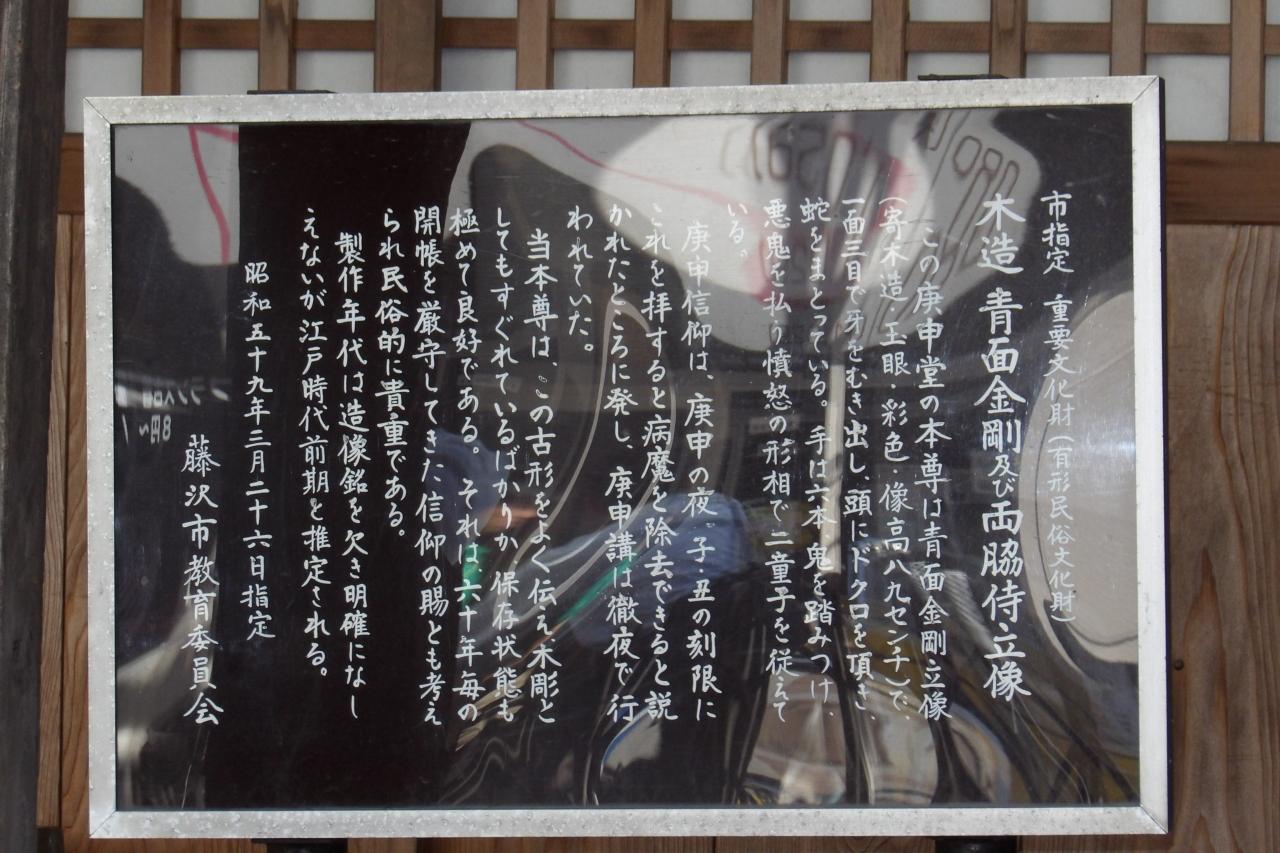 市指定 重要文化財(有形民俗文化財)
木造 青面金剛及び両脇侍立像
この庚申堂の本尊は青面金剛立像
(寄木造・玉眼・彩色・像高八九センチ)で、
一面三目で牙をむき出し、頭にドクロを頂き、
蛇をまとっている。手は六本、鬼を踏みつけ、
悪鬼を払う憤怒の形相で二童子を従えて
いる。
庚申信仰は、庚申の夜、子・丑の刻限に
これを拝すると病魔を除去できると説
かれたところに発し、庚申講は徹夜で行
われていた。
当本尊は、この古形をよく伝え、木彫と
してもすぐれているばかりか、保存状態も
極めて良好である。それは、六十年毎の
開帳を厳守してきた信仰の賜とも考え
られ民俗的に貴重である。
製作年代は造像銘を欠き明確になし
えないが江戸時代前期と推定される。
昭和五十九年三月二十六日指定
藤沢市教育委員会